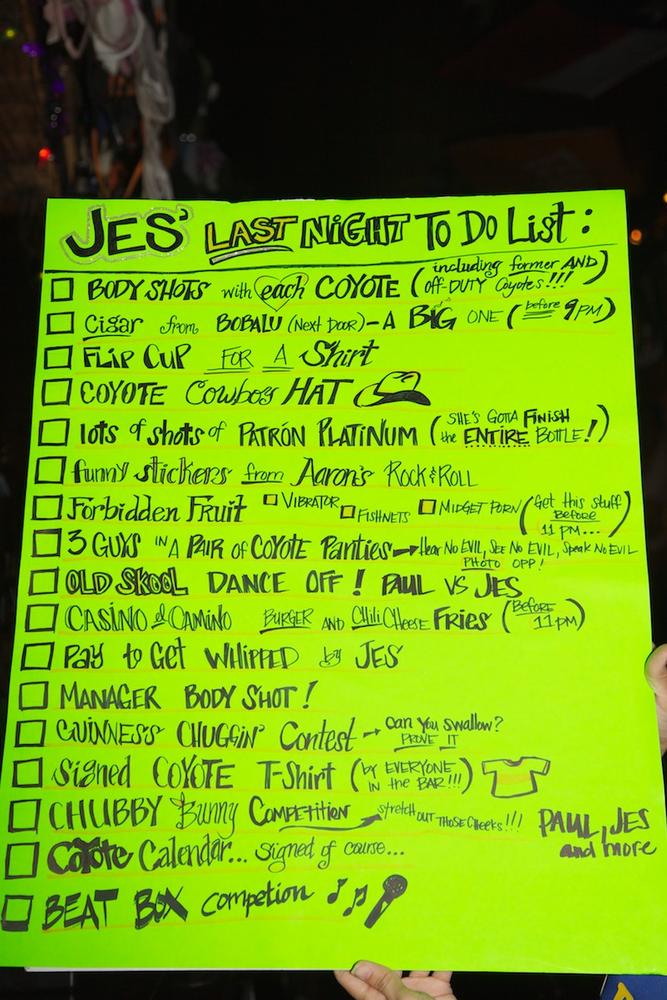 JES' LAST NIGHT TO DO LIST:
BODY SHOTS with each COYOTE (including former AND off-DUTY Coyotes!!!!)
Cigar from BOBALU (Next Door) - A BIG ONE (before 9PM)
FLIP CUP FOR A Shirt
COYOTE Cowboy HAT
lots of shots of PATRÓN PLATINUM (SHE'S GOTTA FINISH the ENTIRE BOTTLE!)
funny stickers from Aaron's ROCK & ROLL
Forbidden Fruit VIBRATOR FISHNETS MIDGET PORN (Get this stuff BEFORE 11 PM...)
3 GUYS IN A PAIR of COYOTE Panties → Hear NO EVIL, SEE NO EVIL, Speak NO EVIL PHOTO OPP!
OLD SKOOL DANCE OFF! PAUL VS JES
CASINO el CAMINO BURGER AND Chili CHEESE FRIES (BEFORE 11PM)
PAY to GET WHIPPED by JES
MANAGER BODY SHOT!
GUINNESS CHUGGIN' Contest → Can You Swallow? PROVE IT
Signed COYOTE T-Shirt (by EVERYONE IN the BAR!!!)
CHUBBY Bunny COMPETITION → stretch OUT THOSE Cheeks!!! PAUL, JES and more
Coyote Calendar... Signed of course...
BEAT BOX competion